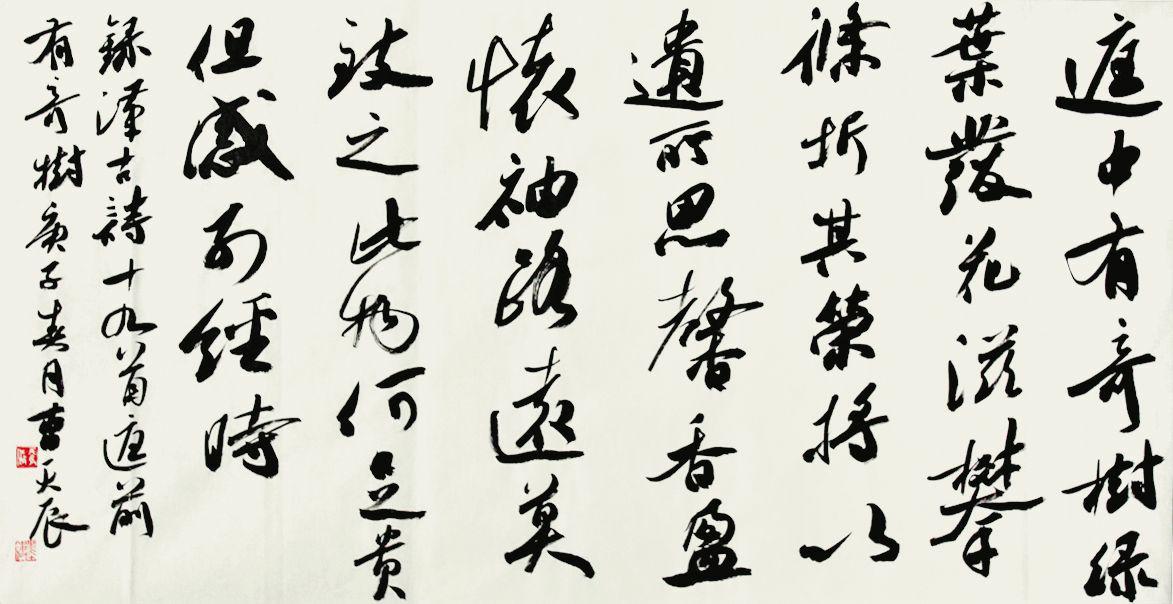 庭中有奇樹緑
葉發花滋攀
條折其榮將以
遺所思馨香盈
懷袖路遠莫
致之此物何足貴
但感別經時
録漢古詩十九首庭前
有奇樹庚子春月曹天辰